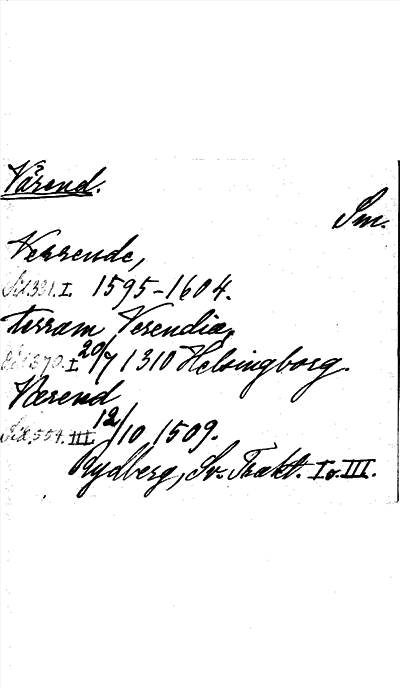 Värend.
Sm.
Verrende,
Sid. 331. I. 1595-1604.
terram Verendiæ,
Sid. 370. I 20/7 1310 Helsingborg.
Værend
Sid. 554. III. 12/10 1509.
Rydberg, Sv. Trakt. I o. III.